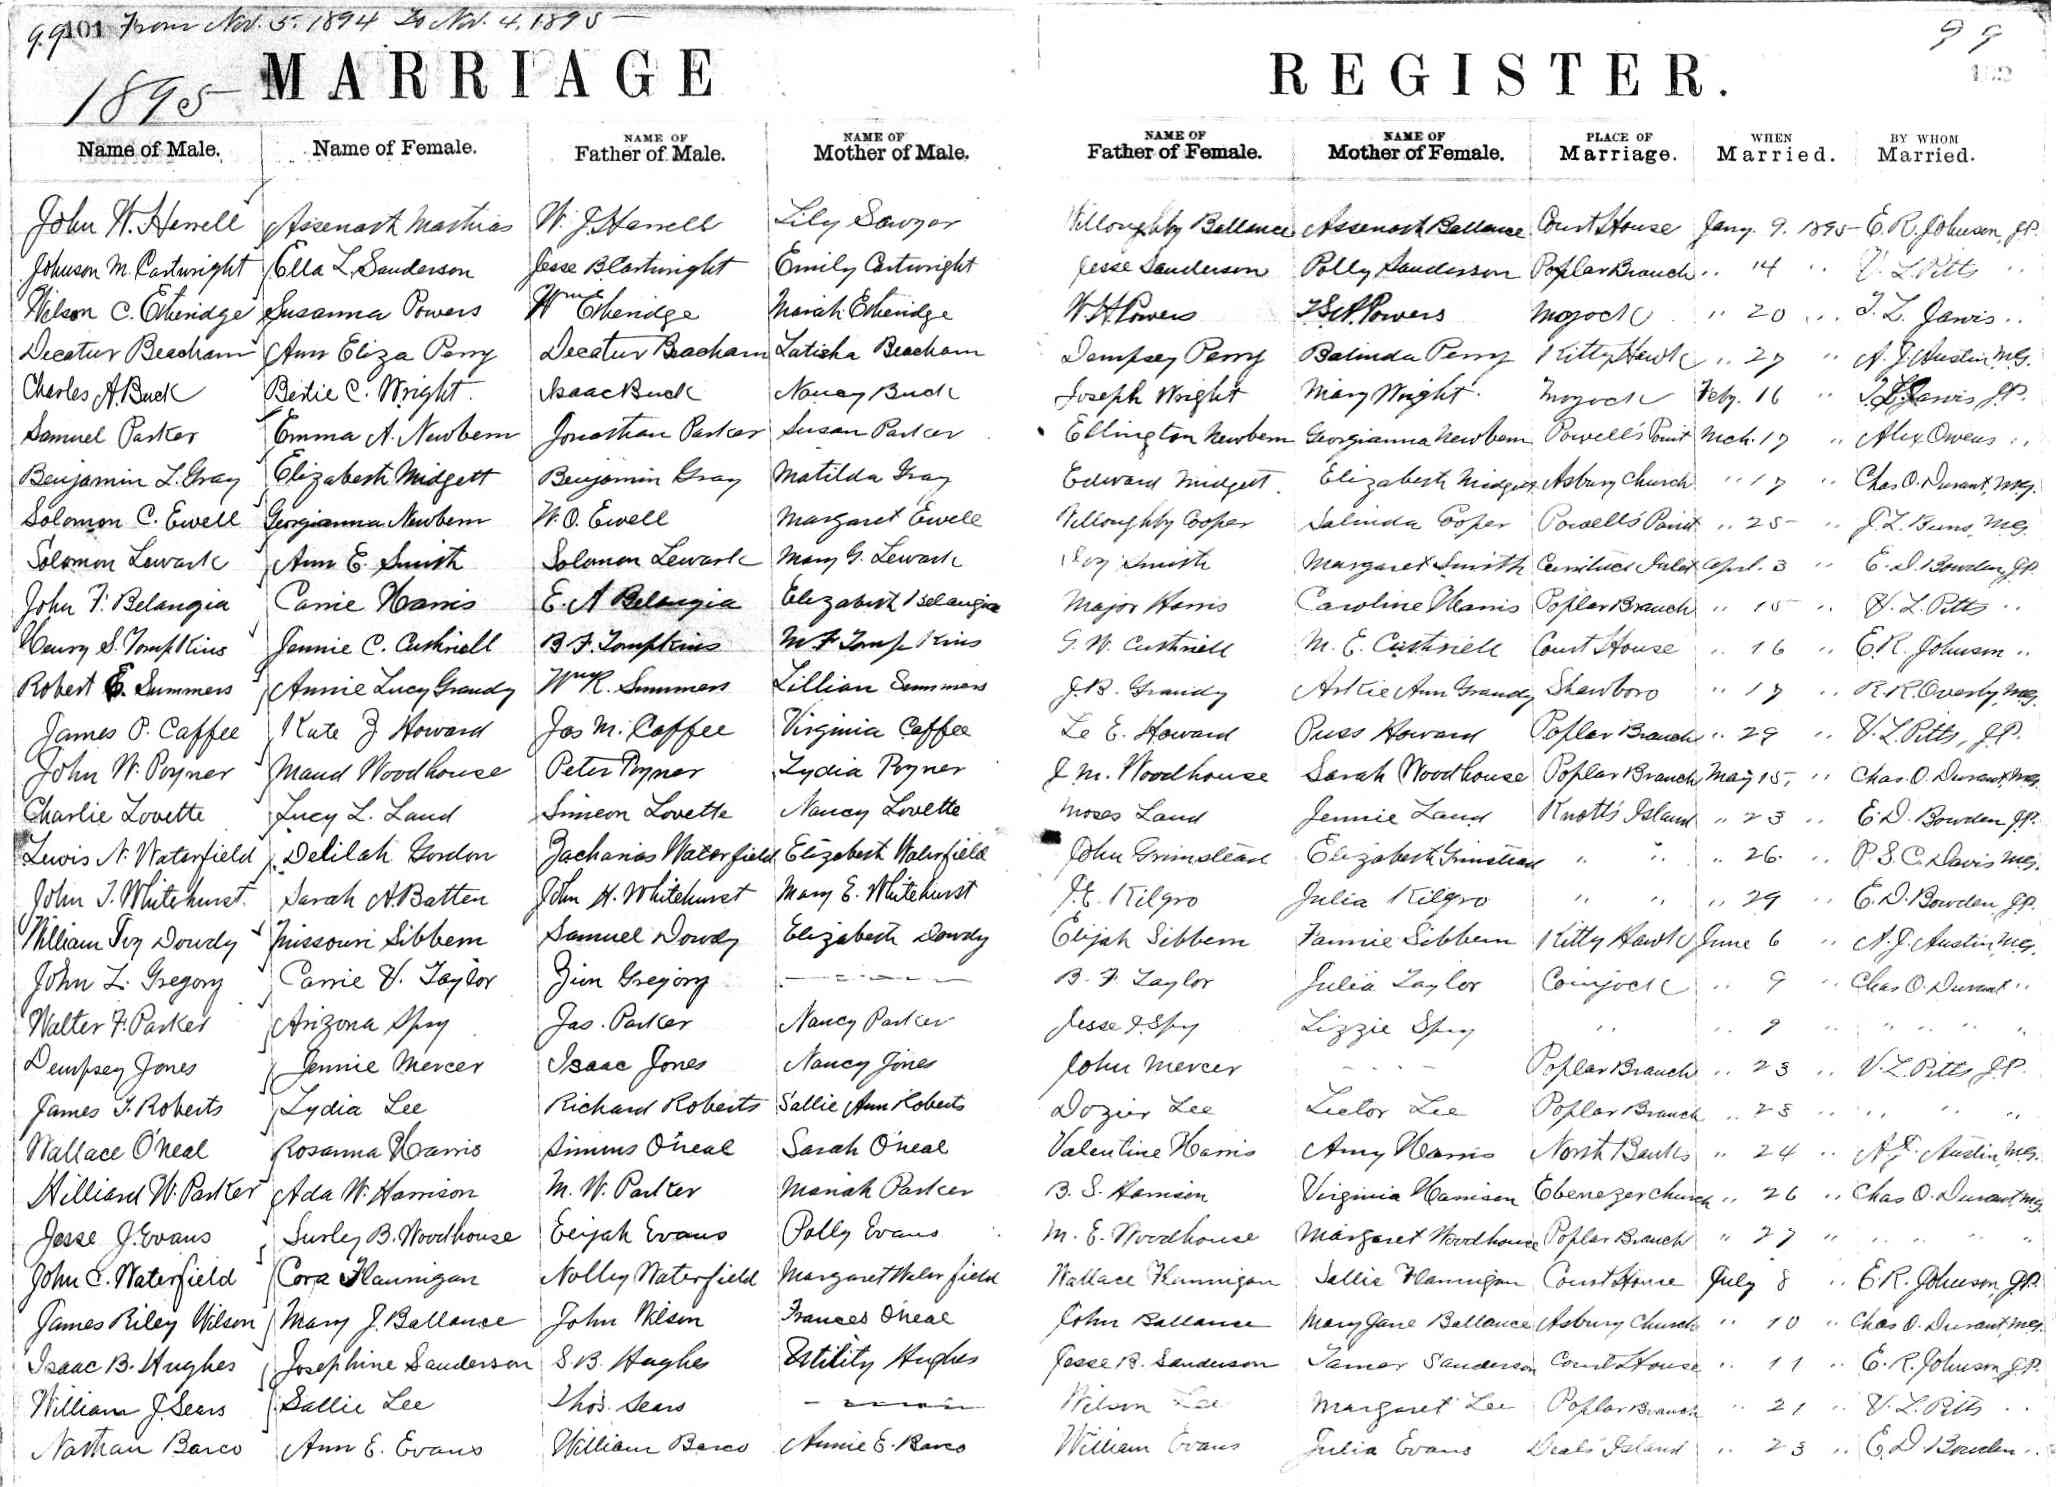 99 101 From Nov. 5. 1894 To Nov. 4, 1895
99
1895 MARRIAGE REGISTER.
Name of Male. Name of Female. NAME OF Father of Male. NAME OF Mother of Male. NAME OF Father of Female. NAME OF Mother of Female. PLACE OF Marriage. WHEN Married. BY WHOM Married.
John W. Harrell Assenath Mathias W. J. Harrell Lily Sawyer Willoughby Ballance Assenath Ballance Court House Jany. 9. 1895 E. R. Johnson, J.P.
Johnson M. Cartwright Ella L. Sanderson Jesse B. Cartwright Emily Cartwright Jesse Sanderson Polly Sanderson Poplar Branch " 14 " V. L. Pitts "
Wilson C. Etheridge Susanna Powers Wm Etheridge Mariah Etheridge W. H. Powers Powers Moyock " 20 " T. L. Jarvis "
Decatur Beacham Ann Eliza Perry Decatur Beacham Latisha Beacham Dempsey Perry Balinda Perry Kitty Hawk " 27 " A. J. Austin, M.G.
Charles A. Buck Bertie C. Wright Isaac Buck Nancy Buck Joseph Wright Mary Wright Moyock Feby. 16 " T. L. Jarvis J.P.
Samuel Parker Emma A. Newbern Jonathan Parker Susan Parker Ellington Newbern Georgianna Newbern Powell's Point Mch. 17 " Alex Owens "
Benjamin L. Gray Elizabeth Midgett Benjamin Gray Matilda Gray Edward Midgett Elizabeth Midgett Asbury Church " 17 " Chas O. Durant, M.G.
Solomon C. Ewell Georgianna Newbern W. O. Ewell Margaret Ewell Willoughby Cooper Salinda Cooper Powell's Point " 25 " J. L. M.G.
Solomon Lewark Ann E. Smith Solomon Lewark Mary G. Lewark Smith Margaret Smith Currituck Inlet Aprl. 3 " E. D. Bowden, J.P.
John F. Belangia Carrie Harris E. A. Belangia Elizabeth Belangia Major Harris Caroline Harris Poplar Branch " 15 " V. L. Pitts "
Henry S. Tompkins Jennie C. Cuthriell B. F. Tompkins M. F. Tompkins G. W. Cuthriell M. E. Cuthriell Court House " 16 " E. R. Johnson "
Robert E. Summers Annie Lucy Grandy Wm R. Summers Lillian Summers J. B. Grandy Askie Ann Grandy Shawboro " 17 " R. R. Overby, M.G.
James P. Caffee Kate Z Howard Jas M. Caffee Virginia Caffee Le E. Howard Puss Howard Poplar Branch " 29 " V. L. Pitts, J.P.
John W. Poyner Maud Woodhouse Peter Poyner Lydia Poyner J. M. Woodhouse Sarah Woodhouse Poplar Branch May 15, " Chas O. Durant, M.G.
Charlie Lovette Lucy L. Land Simeon Lovette Nancy Lovette Moses Land Jennie Land Knott's Island " 23 " E. D. Bowden J.P.
Lewis N. Waterfield Delilah Gordon Zacharias Waterfield Elizabeth Waterfield John Grimstead Elizabeth Grimstead " " " 26 " P. S. C. Davis M.G.
John T. Whitehurst Sarah A. Batten John H. Whitehurst Mary E. Whitehurst J. E. Kilgro Julia Kilgro " " " 29 " E. D. Bowden J.P.
William Ivy Dowdy Missouri Sibbern Samuel Dowdy Elizabeth Dowdy Elijah Sibbern Fannie Sibbern Kitty Hawk June 6 " A. J. Austin, M.G.
John L. Gregory Carrie V. Taylor Zion Gregory B. F. Taylor Julia Taylor Coinjock " 9 " Chas O. Durant "
Walter F. Parker Arizona Spry Jas. Parker Nancy Parker Jesse J. Spry Lizzie Spry " " 9 " " " " "
Dempsey Jones Jennie Mercer Isaac Jones Nancy Jones John Mercer Poplar Branch " 23 " V. L. Pitts J.P.
James T. Roberts Lydia Lee Richard Roberts Sallie Ann Roberts Dozier Lee Lector Lee Poplar Branch " 23 " " " "
Wallace O'neal Rosanna Harris Simms O'neal Sarah O'neal Valentine Harris Amy Harris North Banks " 24 " A. J. Austin, M.G.
Hilliard W. Parker Ada W. Harrison M. W. Parker Mariah Parker B. S. Harrison Virginia Harrison Ebenezer Church " 26 " Chas O. Durant, M.G.
Jesse J. Evans Surley B. Woodhouse Elijah Evans Polly Evans M. E. Woodhouse Margaret Woodhouse Poplar Branch " 27 " " " " "
John C. Waterfield Cora Flannigan Nolley Waterfield Margaret Waterfield Wallace Flannigan Sallie Flannigan Court House July 8 " E. R. Johnson, J.P.
James Riley Wilson Mary J. Ballance John Wilson Frances O'neal John Ballance Mary Jane Ballance Asbury Church " 10 " Chas O. Durant, M.G.
Isaac B. Hughes Josephine Sanderson S. B. Hughes Utility Hughes Jesse B. Sanderson Tamer Sanderson Court House " 11 " E. R. Johnson, J.P.
William J. Sears Sallie Lee Thos. Sears Wilson Lee Margaret Lee Poplar Branch " 21 " V. L. Pitts "
Nathan Barco Ann E. Evans William Barco Annie E. Barco William Evans Julia Evans Deal's Island " 23 " E. D. Bowden "